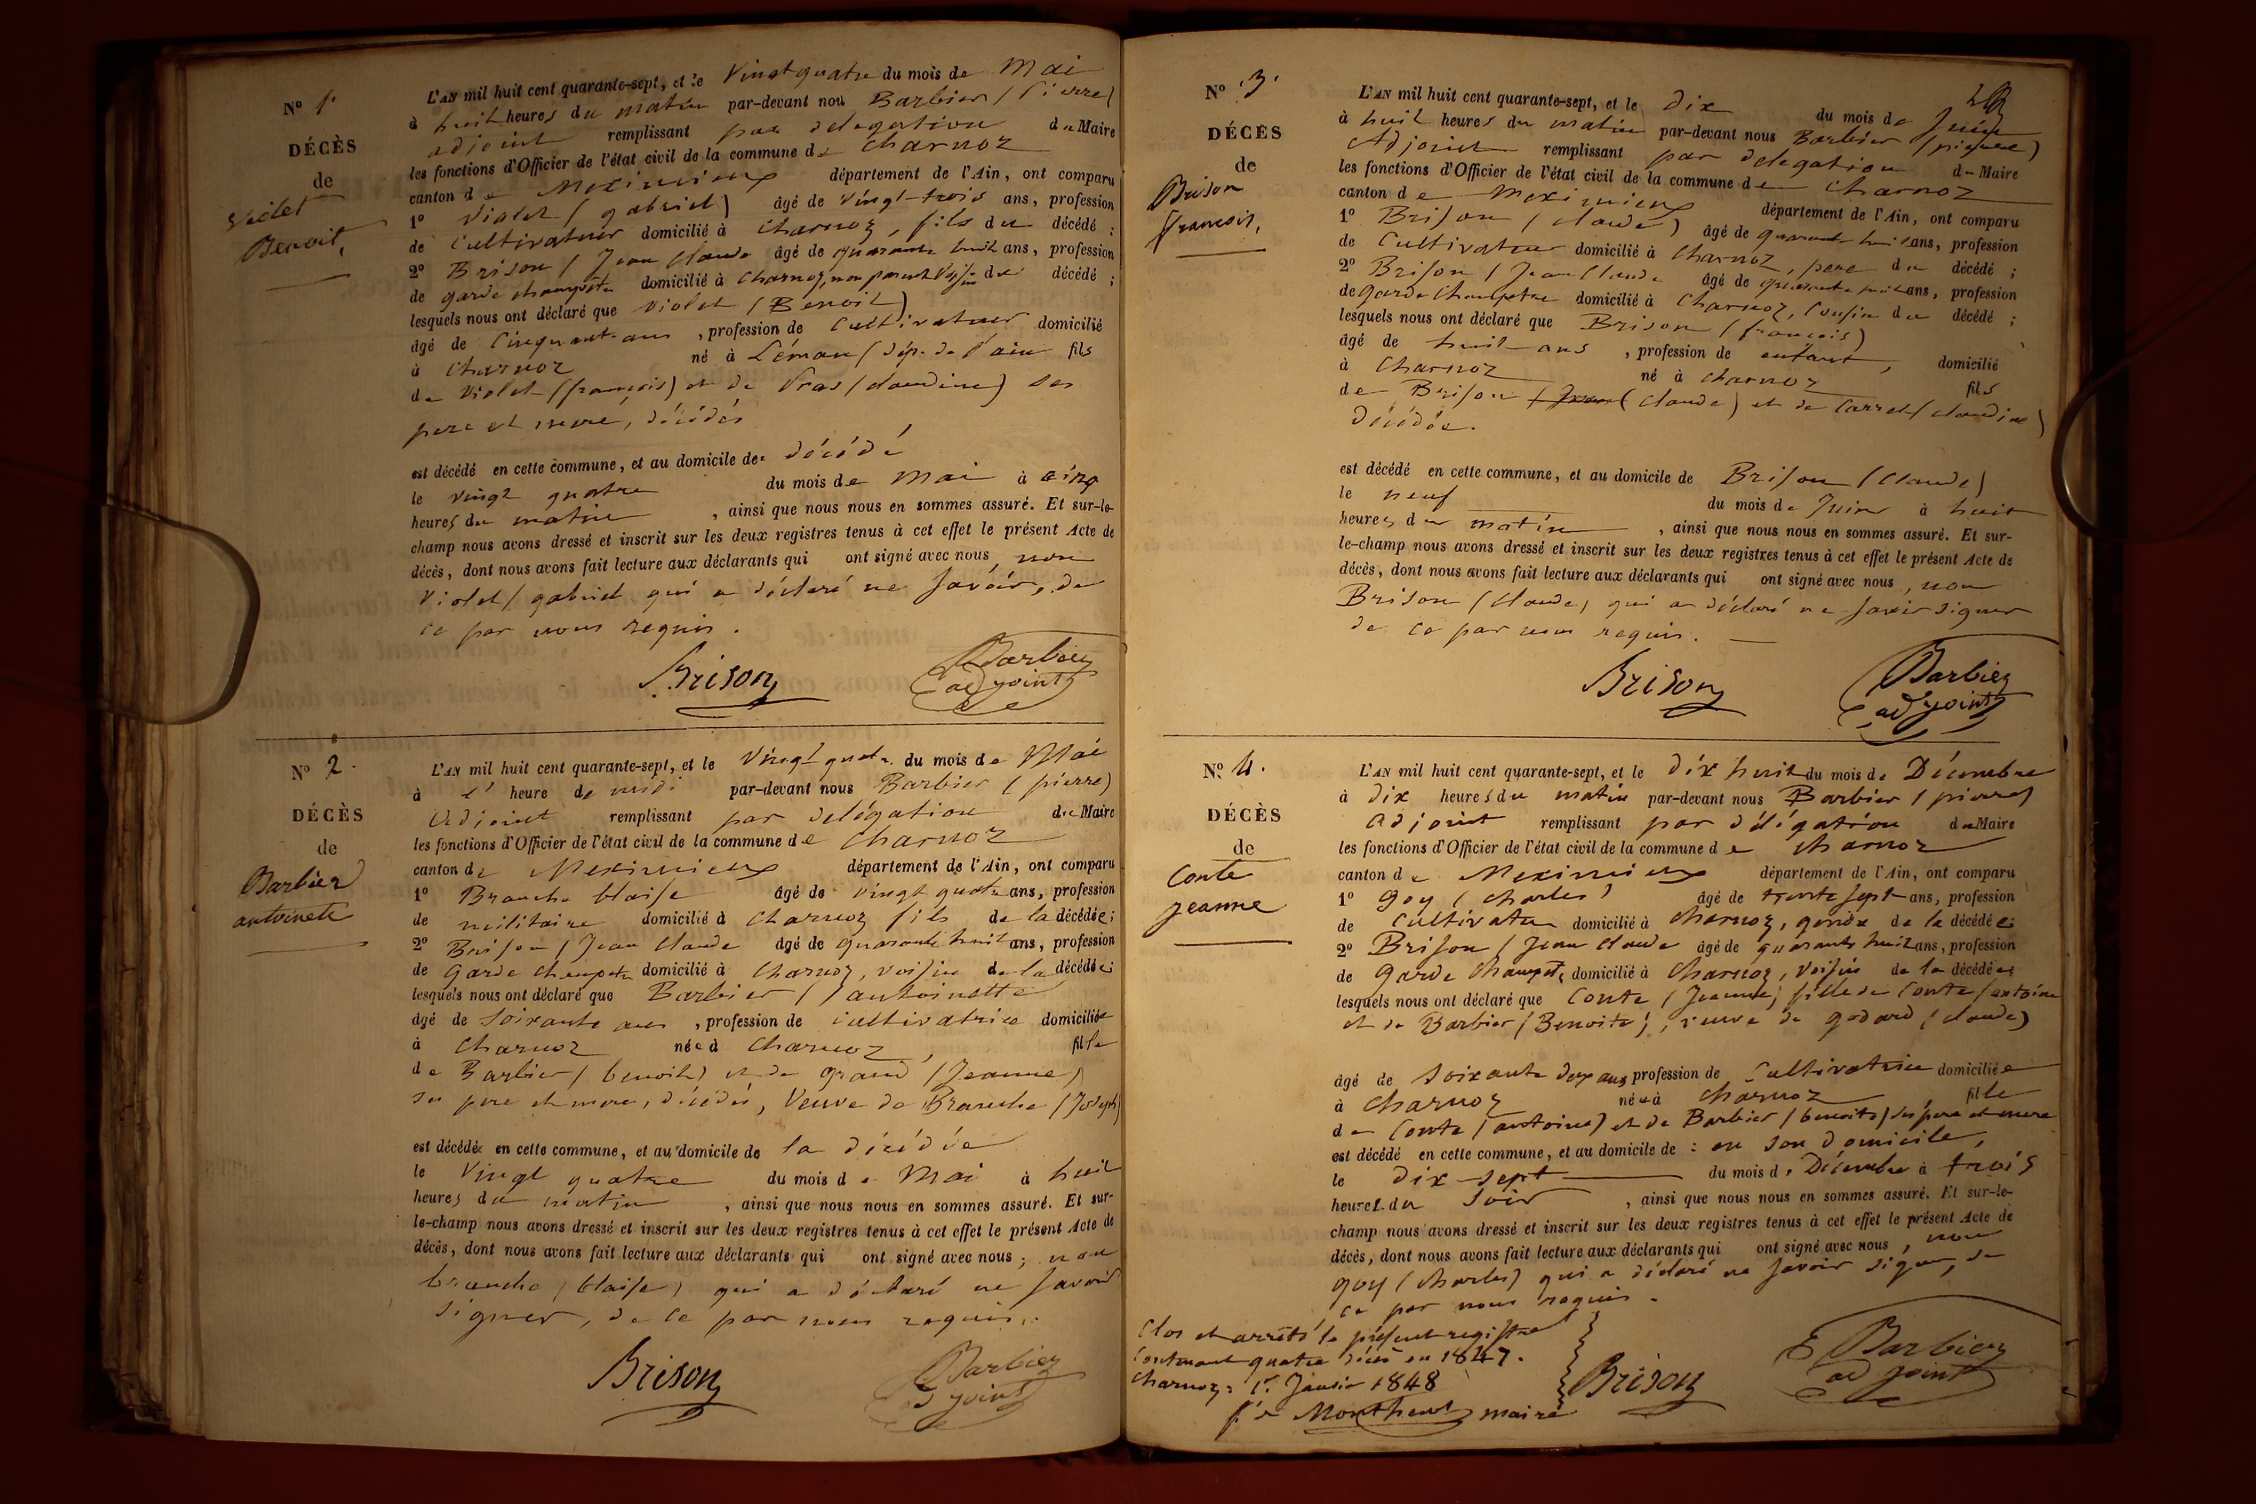 N° 1.
DÉCÈS
de
Violet
Benoit,
L'AN mil huit cent quarante-sept, et le Vingt quatre du mois de Mai
à huit heures du matin par-devant nous Barbier (Pierre)
adjoint remplissant par delegation du Maire
les fonctions d'Officier de l'état civil de la commune de Charnoz
canton de Meximieux département de l'Ain, ont comparu
1° Violet (gabriel) âgé de Vingt-trois ans, profession
de Cultivateur domicilié à Charnoz, fils du décédé ;
2° Brison (Jean Claude âgé de quarante huit ans, profession
de garde champêtre domicilié à Charnoz, non parent Voisin du décédé ;
lesquels nous ont déclaré que Violet (Benoit)
âgé de Cinquant-ans, profession de Cultivateur domicilié
à Charnoz né à Léman (dép. de l'ain fils
de Violet (françois) et de Pras (claudine) ses
pere et mere, décédés
est décédé en cette commune, et au domicile de décédé
le vingt quatre du mois de Mai à cinq
heures du matin, ainsi que nous nous en sommes assuré. Et sur-le-
champ nous avons dressé et inscrit sur les deux registres tenus à cet effet le présent Acte de
décès, dont nous avons fait lecture aux déclarants qui ont signé avec nous, non
Violet (gabriel qui a déclaré ne Savoir, de
ce par nous requis.
Brison Barbier
adjoint
N° 2.
DÉCÈS
de
Barbier
antoinete
L'AN mil huit cent quarante-sept, et le Vingt quatre du mois de Mai
à 1 heure de midi par-devant nous Barbier (pierre)
Adjoint remplissant par delégation du Maire
les fonctions d'Officier de l'état civil de la commune de Charnoz
canton de Meximieux département de l'Ain, ont comparu
1° Branche blaise âgé de vingt quatre ans, profession
de militaire domicilié à Charnoz fils de la décédée ;
2° Brison (Jean Claude âgé de quarante huit ans, profession
de garde champetre domicilié à Charnoz, voisin de la décédée ;
lesquels nous ont déclaré que Barbier (antoinette
âgé de Soixante ans, profession de cultivatrice domiciliée
à Charnoz née à Charnoz, fille
de Barbier (benoit) et de grand (Jeanne)
ses pere et mere, décédés, Veuve de Branche (Joseph)
est décédée en cette commune, et au domicile de la décédée
le Vingt quatre du mois de Mai à huit
heures du matin, ainsi que nous nous en sommes assuré. Et sur-
le-champ nous avons dressé et inscrit sur les deux registres tenus à cet effet le présent Acte de
décès, dont nous avons fait lecture aux déclarants qui ont signé avec nous ; non
branche (blaise) qui a déclaré ne Savoir
signer, de ce par nous requis.
Brison Barbier
adjoint
N° 3.
DÉCÈS
de
Brison
francois,
L'AN mil huit cent quarante-sept, et le dix du mois de Juin
à huit heures du matin par-devant nous Barbier (pierre)
Adjoint remplissant par delegation du Maire
les fonctions d'Officier de l'état civil de la commune de Charnoz
canton de Meximieux département de l'Ain, ont comparu
1° Brison (claude) âgé de quarante huit ans, profession
de Cultivateur domicilié à Charnoz, pere du décédé ;
2° Brison (Jean Claude âgé de quarante huit ans, profession
de garde Champetre domicilié à Charnoz, Cousin du décédé ;
lesquels nous ont déclaré que Brison (françois)
âgé de huit ans, profession de enfant, domicilié
à Charnoz né à Charnoz fils
de Brison (Jean (Claude) et de Carret (claudine)
décédée.
est décédé en cette commune, et au domicile de Brison (Claude)
le neuf du mois de Juin à huit
heures du matin, ainsi que nous nous en sommes assuré. Et sur-
le-champ nous avons dressé et inscrit sur les deux registres tenus à cet effet le présent Acte de
décès, dont nous avons fait lecture aux déclarants qui ont signé avec nous, non
Brison (Claude, qui a déclaré ne savoir signer
de ce par nous requis.
Brison Barbier
adjoint
N° 4.
DÉCÈS
de
Conte
jeanne
L'AN mil huit cent quarante-sept, et le dix huit du mois de Décembre
à dix heures du matin par-devant nous Barbier (pierre)
adjoint remplissant par délégation du Maire
les fonctions d'Officier de l'état civil de la commune de Charnoz
canton de Meximieux département de l'Ain, ont comparu
1° Goy (Charles) âgé de trente sept ans, profession
de Cultivateur domicilié à Charnoz, gendre de la décédée
2° Brison (Jean Claude âgé de quarante huit ans, profession
de garde champetre domicilié à Charnoz, Voisin de la décédée
lesquels nous ont déclaré que Conte (Jeanne) fille de Conte (antoine
et de Barbier (Benoite), veuve de godard (claude)
âgé de Soixante dix ans profession de Cultivatrice domiciliée
à Charnoz née à Charnoz fille
de Conte (antoine) et de Barbier (benoite) ses pere et mere
est décédé en cette commune, et au domicile de : en son domicile,
le dix-sept du mois de Décembre à trois
heures du Soir, ainsi que nous nous en sommes assuré. Et sur-le-
champ nous avons dressé et inscrit sur les deux registres tenus à cet effet le présent Acte de
décès, dont nous avons fait lecture aux déclarants qui ont signé avec nous, non
Goy (Charles) qui a déclaré ne Savoir signer, de
ce par nous requis.
Clos et arrêté le présent registre
Contenant quatre décès en 1847.
Charnoz, 1er Janvier 1848
Montherot maire
Brison Barbier
adjoint